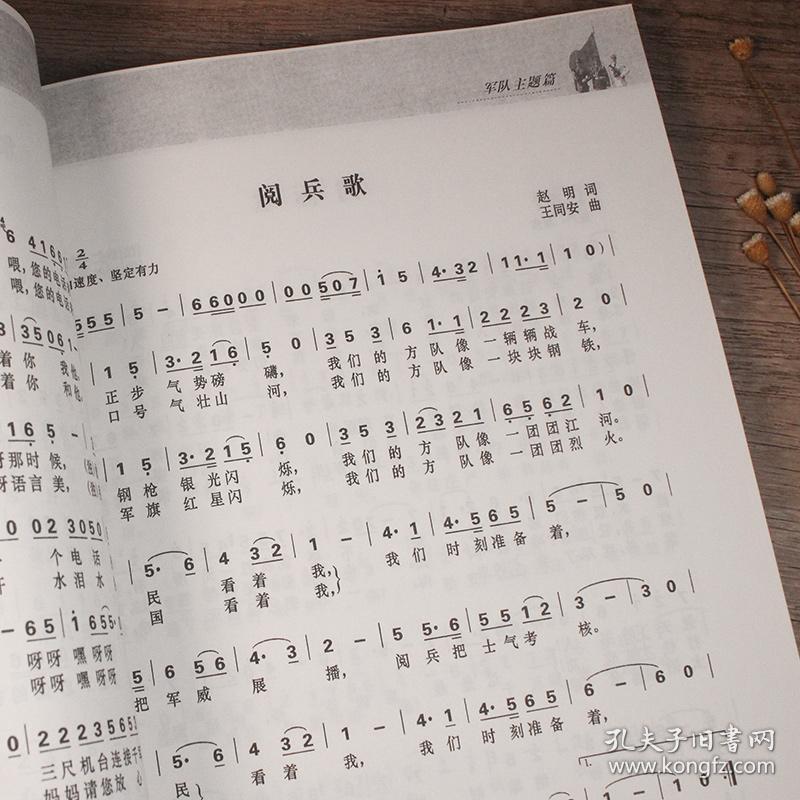 军队主题篇
阅兵歌
赵 明 词
王同安 曲
2/4
速度、坚定有力
5 5 5 5 | 5 - | 6 6 0 0 0 0 | 0 0 5 0 7 | i 5 | 4· 3 2 | 1 1· 1 1 | 1 0 ) |
1 5 | 3· 2 1 6 | 5 0 | 3 5 3 | 6 1· 1 | 2 2 2 3 | 2 0 |
正 步 气 势 磅 礴, 我 们 的 方 队 像 一 辆 辆 战 车,
口 号 气 壮 山 河, 我 们 的 方 队 像 一 块 块 钢 铁,
1 5 | 3· 2 1 5 | 6 0 | 3 5 3 | 2 3 2 1 | 6 5 6 2 | 1 0 |
钢 枪 银 光 闪 烁, 我 们 的 方 队 像 一 团 团 江 河。
军 旗 红 星 闪 烁, 我 们 的 方 队 像 一 团 团 烈 火。
5· 6 | 4 3 2 | 1 - | 4· 1 | 4· 5 6 5 | 5 - | 5 0 |
民 看 着 我, 我 们 时 刻 准 备 着,
国 看 着 我,
5 | 4 5 6 | 4· 3 | 2 - | 5 5· 6 | 5 5 1 2 | 3 - | 3 0 |
把 军 威 展 播, 阅 兵 把 士 气 考 核。
5· 6 | 4 3 2 | 1 - | 4· 1 | 4· 5 6 5 | 6 - | 6 0 |
民 看 着 我, 我 们 时 刻 准 备 着,
喂, 您的电话
喂, 您的电话
着 你 我 他
着 你 和 他
呀那时候,
呀语言美,
个 电话
水泪水
呀呀 嘿呀呀
呀呀 嘿呀呀
0 | 2 2 2 2 3 5 6 5
三尺机台连接千
妈妈请您放 心
孔夫子旧书网
www.kongfz.com